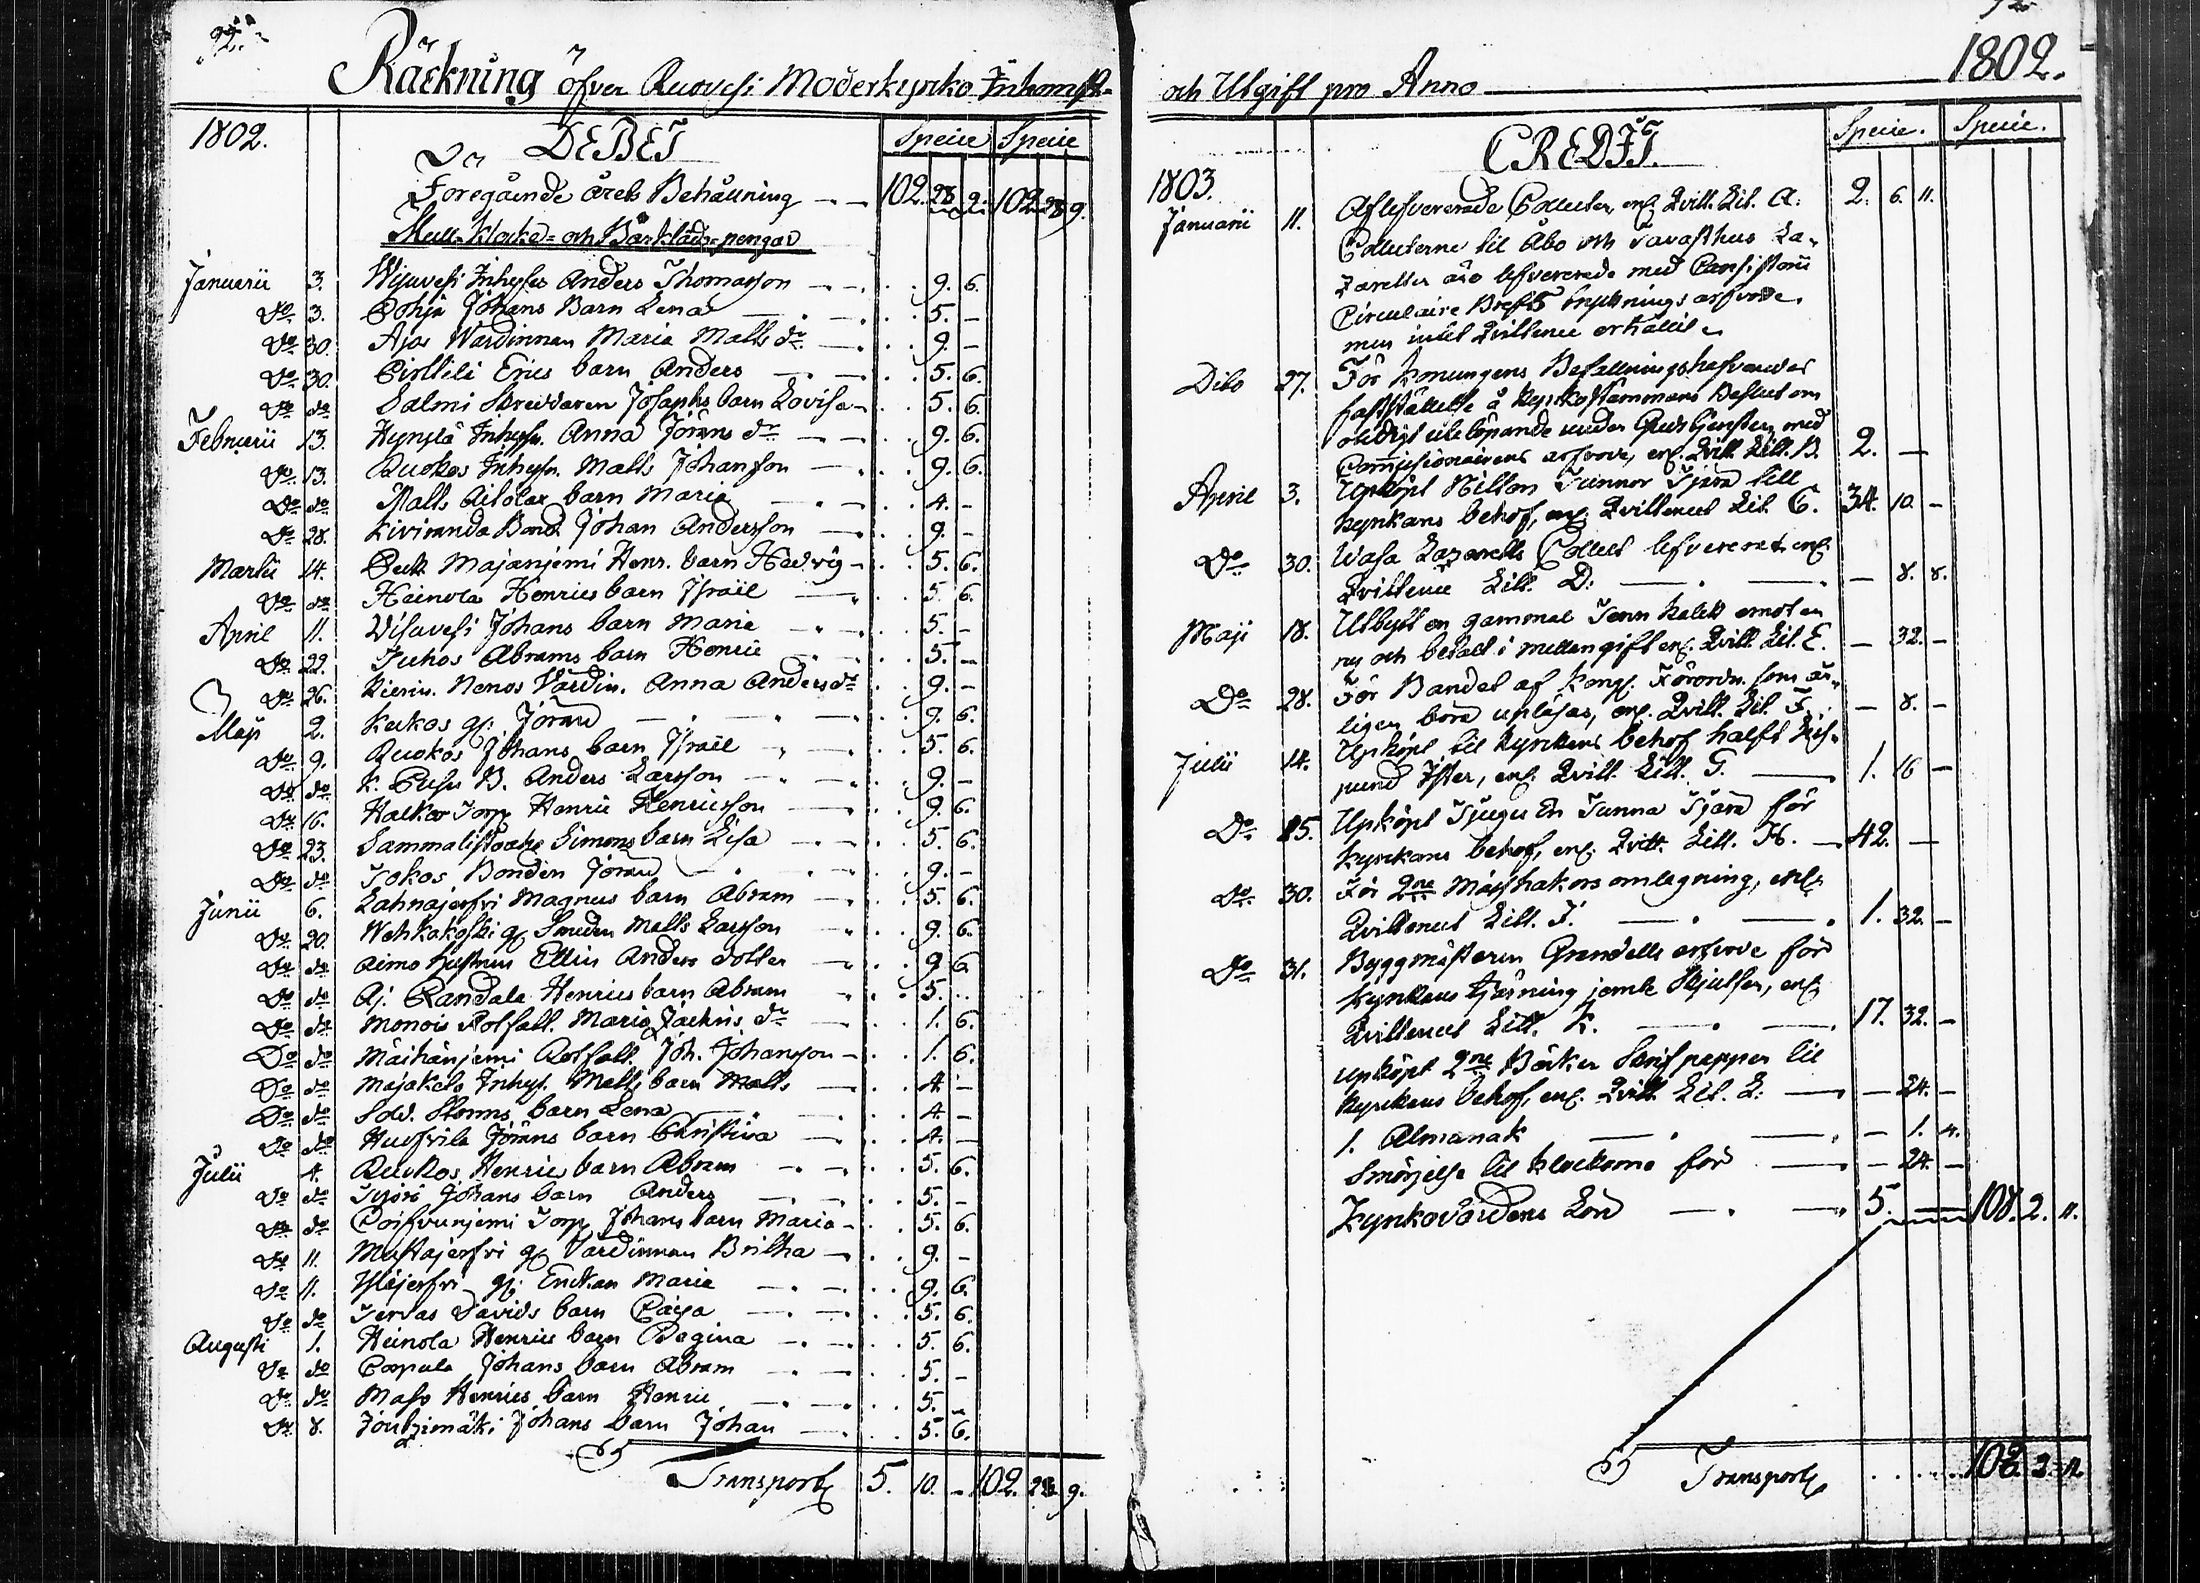 92.
Räckning öfver Ruovesi Moderkyrko Inkomst
1802. DEBET Specie Specie
Föregående årets Behållning 102. 28. 9. 102. 28. 9.
Mull- Klocke- och Bårklädes-pengar
Januarii 3. Wisuvesi Inhyses Anders Thomasson 9. 6.
Do 3. Pohja Johans Barn Lena 5. -
Do 30. Ajos Wärdinnan Maria Matts dr 9. -
Do 30. Pirttili Erics barn Anders 5. 6.
Do do Salmi Skreddaren Josephs barn Lovisa 5. 6.
Februarii 13. Inhyses Anna Jörans dr 9. 6.
Do 13. Ruokos Inhyses Matts Johansson 9. 6.
Do do Matts barn Maria 4. -
Do 28. Kiviranda Bond. Johan Andersson 9. -
Martii 14. Majanjemi Henr. barn Hedvig 5. 6.
Do do Heinola Henrics barn Israel 5. 6.
April 11. Visuvesi Johans barn Maria 5. -
Do 22. Juhos Abrams barn Henric 5. -
Do 26. Nenos Värdin. Anna Anders dr 9. -
Maji 2. Kukos gl. Jöran 9. 6.
Do 9. Ruokos Johans barn Israel 5. 6.
Do do K. B. Anders Larsson 9. -
Do 16. Torp. Henric Henricsson 9. 6.
Do 23. Simons barn Lisa 5. 6.
Do do Jokos Bonden Jöran 9. -
Junii 6. Lahnajerfvi Magnus barn Abram 5. 6.
Do 20. gl. Smeden Matts Larsson 9. 6.
Do do Aimo Hustrun Ellin Anders dotter 9. 6.
Do do Randala Henrics barn Abram 5. ..
Do do Monois Rotfatt. Maria dr 1. 6.
Do do Rotfatt. Joh. Johansson 1. 6.
Do do Inhys. Matts barn Matts 4. -
Do do Sold. Storms barn Lena 4. -
Do do Jörans barn Christina 4. -
Julii 4. Ruokos Henrics barn Abram 5. 6.
Do do Johans barn Anders 5. -
Do do Torp. Johans barn Maria 5. 6.
Do 11. Mustajerfvi gl. Värdinnan Britha 9. -
Do 11. gl. Enckan Maria 9. 6.
Do do Tervas Davids barn Caisa 5. 6.
Augusti 1. Heinola Henrics barn Regina 5. 6.
Do do Johans barn Abram 5. -
Do do Henrics barn Henric 5. -
Do 8. Johans barn Johan 5. 6.
Transport 5. 10. - 102. 28. 9.
och Utgift pro Anno 1802.
CREDIT. Specie. Specie.
1803.
Januarii 11. Aflefvererade Collecter, enl. Qvitt. Lit. A: 2. 6. 11.
Collecterne til Åbo och Tavasthus La-
zaretter äro lefvererade med Consistorii
Circulaire Brefs arfvode,
men intet Qvittence erhållit.
Dito 27. För Konungens Befallningshafvandes
fastställelse å Kyrkostämmans Beslut om
utelöpande under Gudstjensten, med
Commissionairens arfvode, enl. Qvitt. Litt. B. 2. -
April 3. Upköpt Nitton Tunnor Tjära till
kyrkans behof, enl. Qvittencet Lit. C. 34. 10. -
Do 30. Wasa Lazaretts Collect lefvererat, enl.
Qvittence Litt. D: - 8. 8.
Maji 18. Utbytt en gammal Tenn Kalk emot en
ny och betalt i mellangift enl. Qvitt. Lit. E. - 32. -
Do 28. För Bandet af Kongl. Förordn. som år-
ligen böra upläsas, enl. Qvitt. Lit. F. - 8. -
Julii 14. Upköpt til kyrkans behof halft Lis-
pund Ister, enl. Qvitt. Litt. G. 1. 16 -
Do 25. Upköpt Tjugu En Tunna Tjära för
kyrkans behof, enl. Qvitt. Litt. H. 42. -
Do 30. För 2ne Mässhakars omlagning, enl.
Qvittencet Litt. I. 1. 32. -
Do 31. Byggmästaren Grandells arfvode för
Kyrkans Tjärning jemte Skjutsen, enl.
Qvittencet Litt. K. 17. 32. -
upköpt 2ne Böcker Skrifpapper til
kyrkans behof, enl. Qvitt. Lit. L: - 24. -
1. Almanak - 1. 4.
Smörjelse til klockorna för - 24. -
Kyrkovärdens Lön 5. 108. 2. 11.
Transport 108. 2. 11.